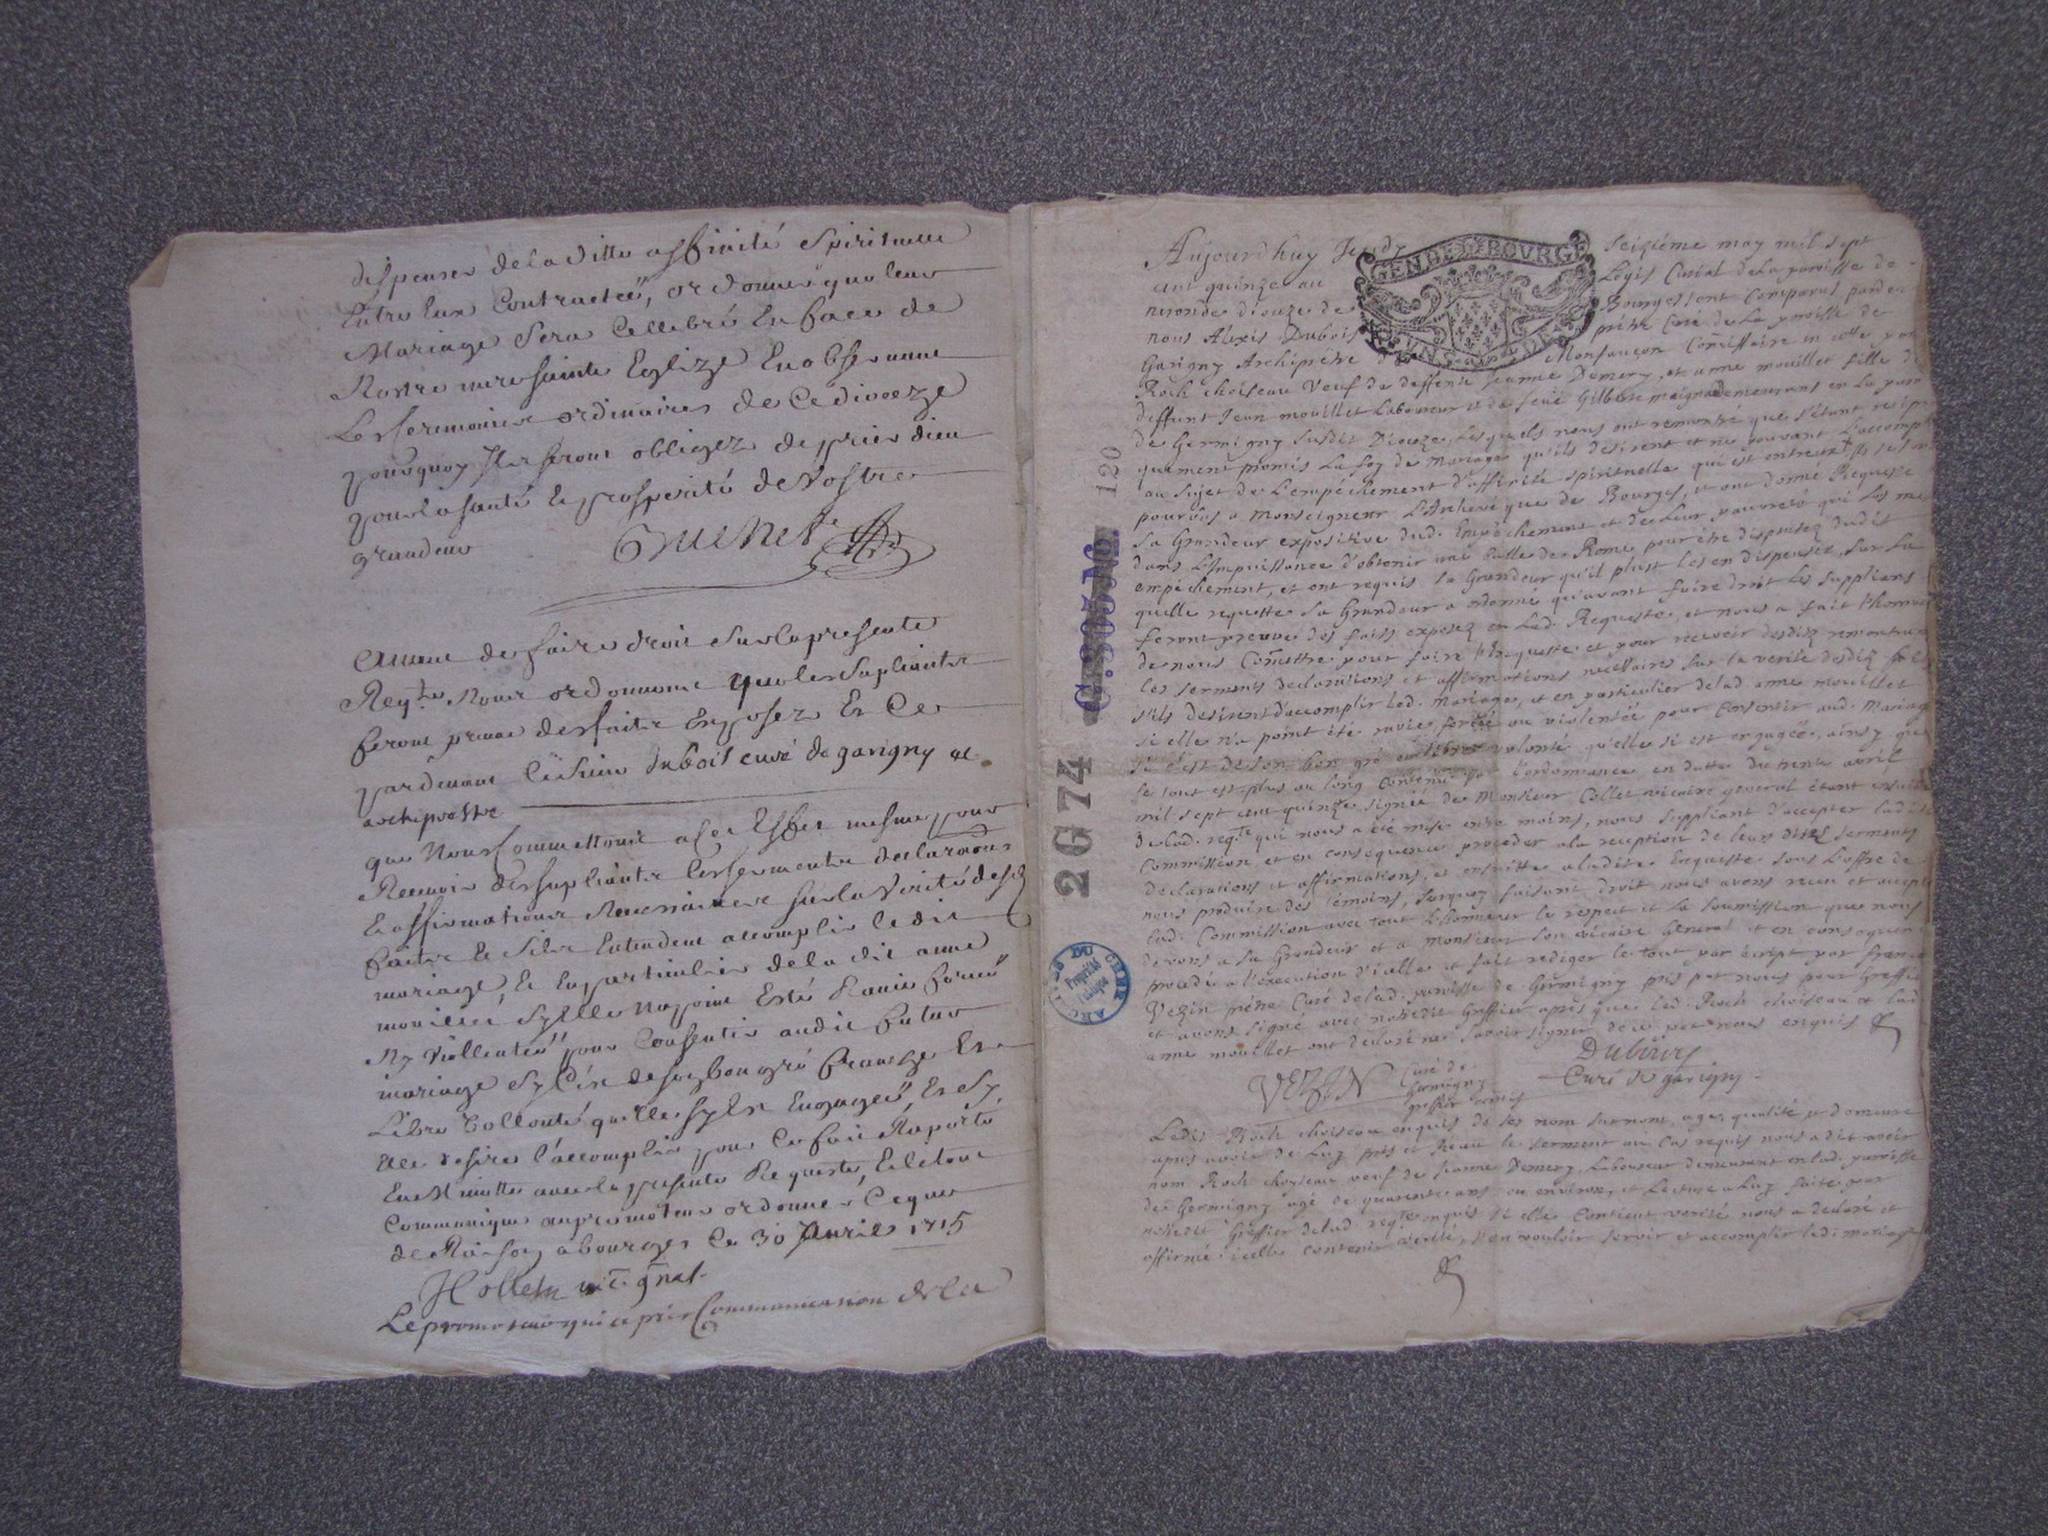 dispenser de la ditte affinité spirituelle
Entre Eux Contractée, ordonner que leur
Mariage Sera Cellebré En face de
Nostre mere sainte Eglize En observant
Les seremonies ordinaires de Ce dioceze
pourquoy Ils seront obligez de prier dieu
pour la santé Et prosperité de Vostre
grandeur
Avant de faire droit sur la presente
Reqte. Nous ordonnons que les supliants
feront preuve des faits Exposez En Ce
pardevant le sieur dubois curé de garigny et
archiprestre
que Nous Commettons a cet Effet mesme pour
Recevoir des supliants les serments declaraons
Et affirmations Necessaires sur la Verité desd
faits Et s'ils Entendent accomplir le dit
mariage, Et En particulier de la dit anne
mouillet sy Elle Na point Esté Ravie forcée
Ny Viollentée pour Consentir audit futur
mariage sy C'est de son bon gré franche Et
Libre Vollonté quelle sy Est Engagée, Et sy
Elle desire l'accomplir pour le fait Raporté
En Minutte avec la presente Requeste, Et le tout
Communiqué au promoteur ordonner Ce que
de Raison a bourges le 30 Avril 1715
vic. gnal.
Le promoteur qui a pris Communication de la
2G 74 C. 305 No. 120
ARCHIVES DU CHER
Propriété
Publique
GEN. DE BOURGES
Aujourdhuy Jeudy seizième may mil sept
cent quinze au Logis Curial de la paroisse de
diouze de Bourges sont Comparus parde
nous Alexis Dubois prêtre Curé de La paroisse de
Garigny Archiprêtre de Monfaucon Comissaire en cette par
Roch choiseau Veuf de deffunte Jeanne Demery, et anne mouillet fille de
deffunt Jean mouillet Laboureur et de feüe Gilberte meignan demeurants en La paroi
de Germigny susdit Diouze, Lesquels nous ont remontré que s'étant recipro
quement promis La foy de Mariage qu'ils désirent et ne pouvant L'accompl
au sujet de L'empêchement d'affinité spirituelle qui est entreux ils se son
pourvûs a Monseigneur L'Archevêque de Bourges, et ont donné Requeste
sa Grandeur expositive dud. Empêchement et de Leur pauvreté qui Les me
dans L'Impuissance d'obtenir une bulle de Rome pour être dispensez dudit
empéchement, et ont requis sa Grandeur qu'il plust les en dispenser, sur La
quelle requeste sa Grandeur a ordonné qu'avant faire droit Les supplians
feront preuve des faits exposez en Lad. Requeste, et nous a fait l'honneur
de nous Comettre pour faire l'Enqueste et pour recevoir desdits remontrants
les serments declarations et affirmations necessaires sur la verité desdits faits
s'ils desirent d'accomplir Led. mariage, et en particulier de lad. anne mouillet
si elle n'a point été ravie forcée ou violentée pour Consentir aud. Mariage
si c'est de son bon gré et libre volonté qu'elle si est engagée, ainsy que
le tout est plus au long Contenu l'ordonnance en datte du trente avril
mil sept cent quinze signée de Monsieur Collet vicaire general étant ensuitte
de lad. reqte qui nous a été mise entre mains, nous suppliant d'accepter ladite
Commission et en consequence proceder a la reception de leurs dites serments
declarations et affirmations, et ensuitte a ladite Enqueste sous L'offre de
nous produire des témoins, surquoy faisant droit nous avons receu et accepté
lad. Commission avec tout L'honneur le respect et la soumission que nous
devons a sa Grandeur et a monsieur son vicaire Général et en consequen
procedé a l'execution d'icelle et fait rediger le tout par écript par françois
Vezin prêtre Curé de lad. paroisse de Germigny pris par nous pour Greffier
et avons signé avec nôtredit Greffier après que led. Roch choiseau et lad.
anne mouillet ont declaré ne savoir signer de ce par nous enquis
VEZIN Curé de
Germigny
greffier commis
Dubois
Curé de garigny
Ledit Roch choiseau enquis de ses nom surnom, age, qualité et demeure
apres avoir de Luy pris et Receu le serment au Cas requis nous a dit avoir
nom Roch choiseau veuf de Jeanne Demery, Laboureur demeurant en lad. paroisse
de Germigny agé de quarente ans ou environ, et Lecture a Luy faite par
nôtredit Greffier de lad. reqte enquis si elle Contient verité nous a declaré et
affirmé icelle contenir verité, s'en vouloir servir et accomplir ledit mariage